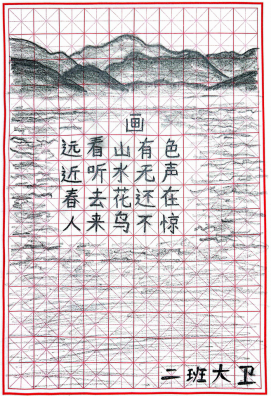 画
远看山有色
近听水无声
春去花还在
人来鸟不惊
二班大卫